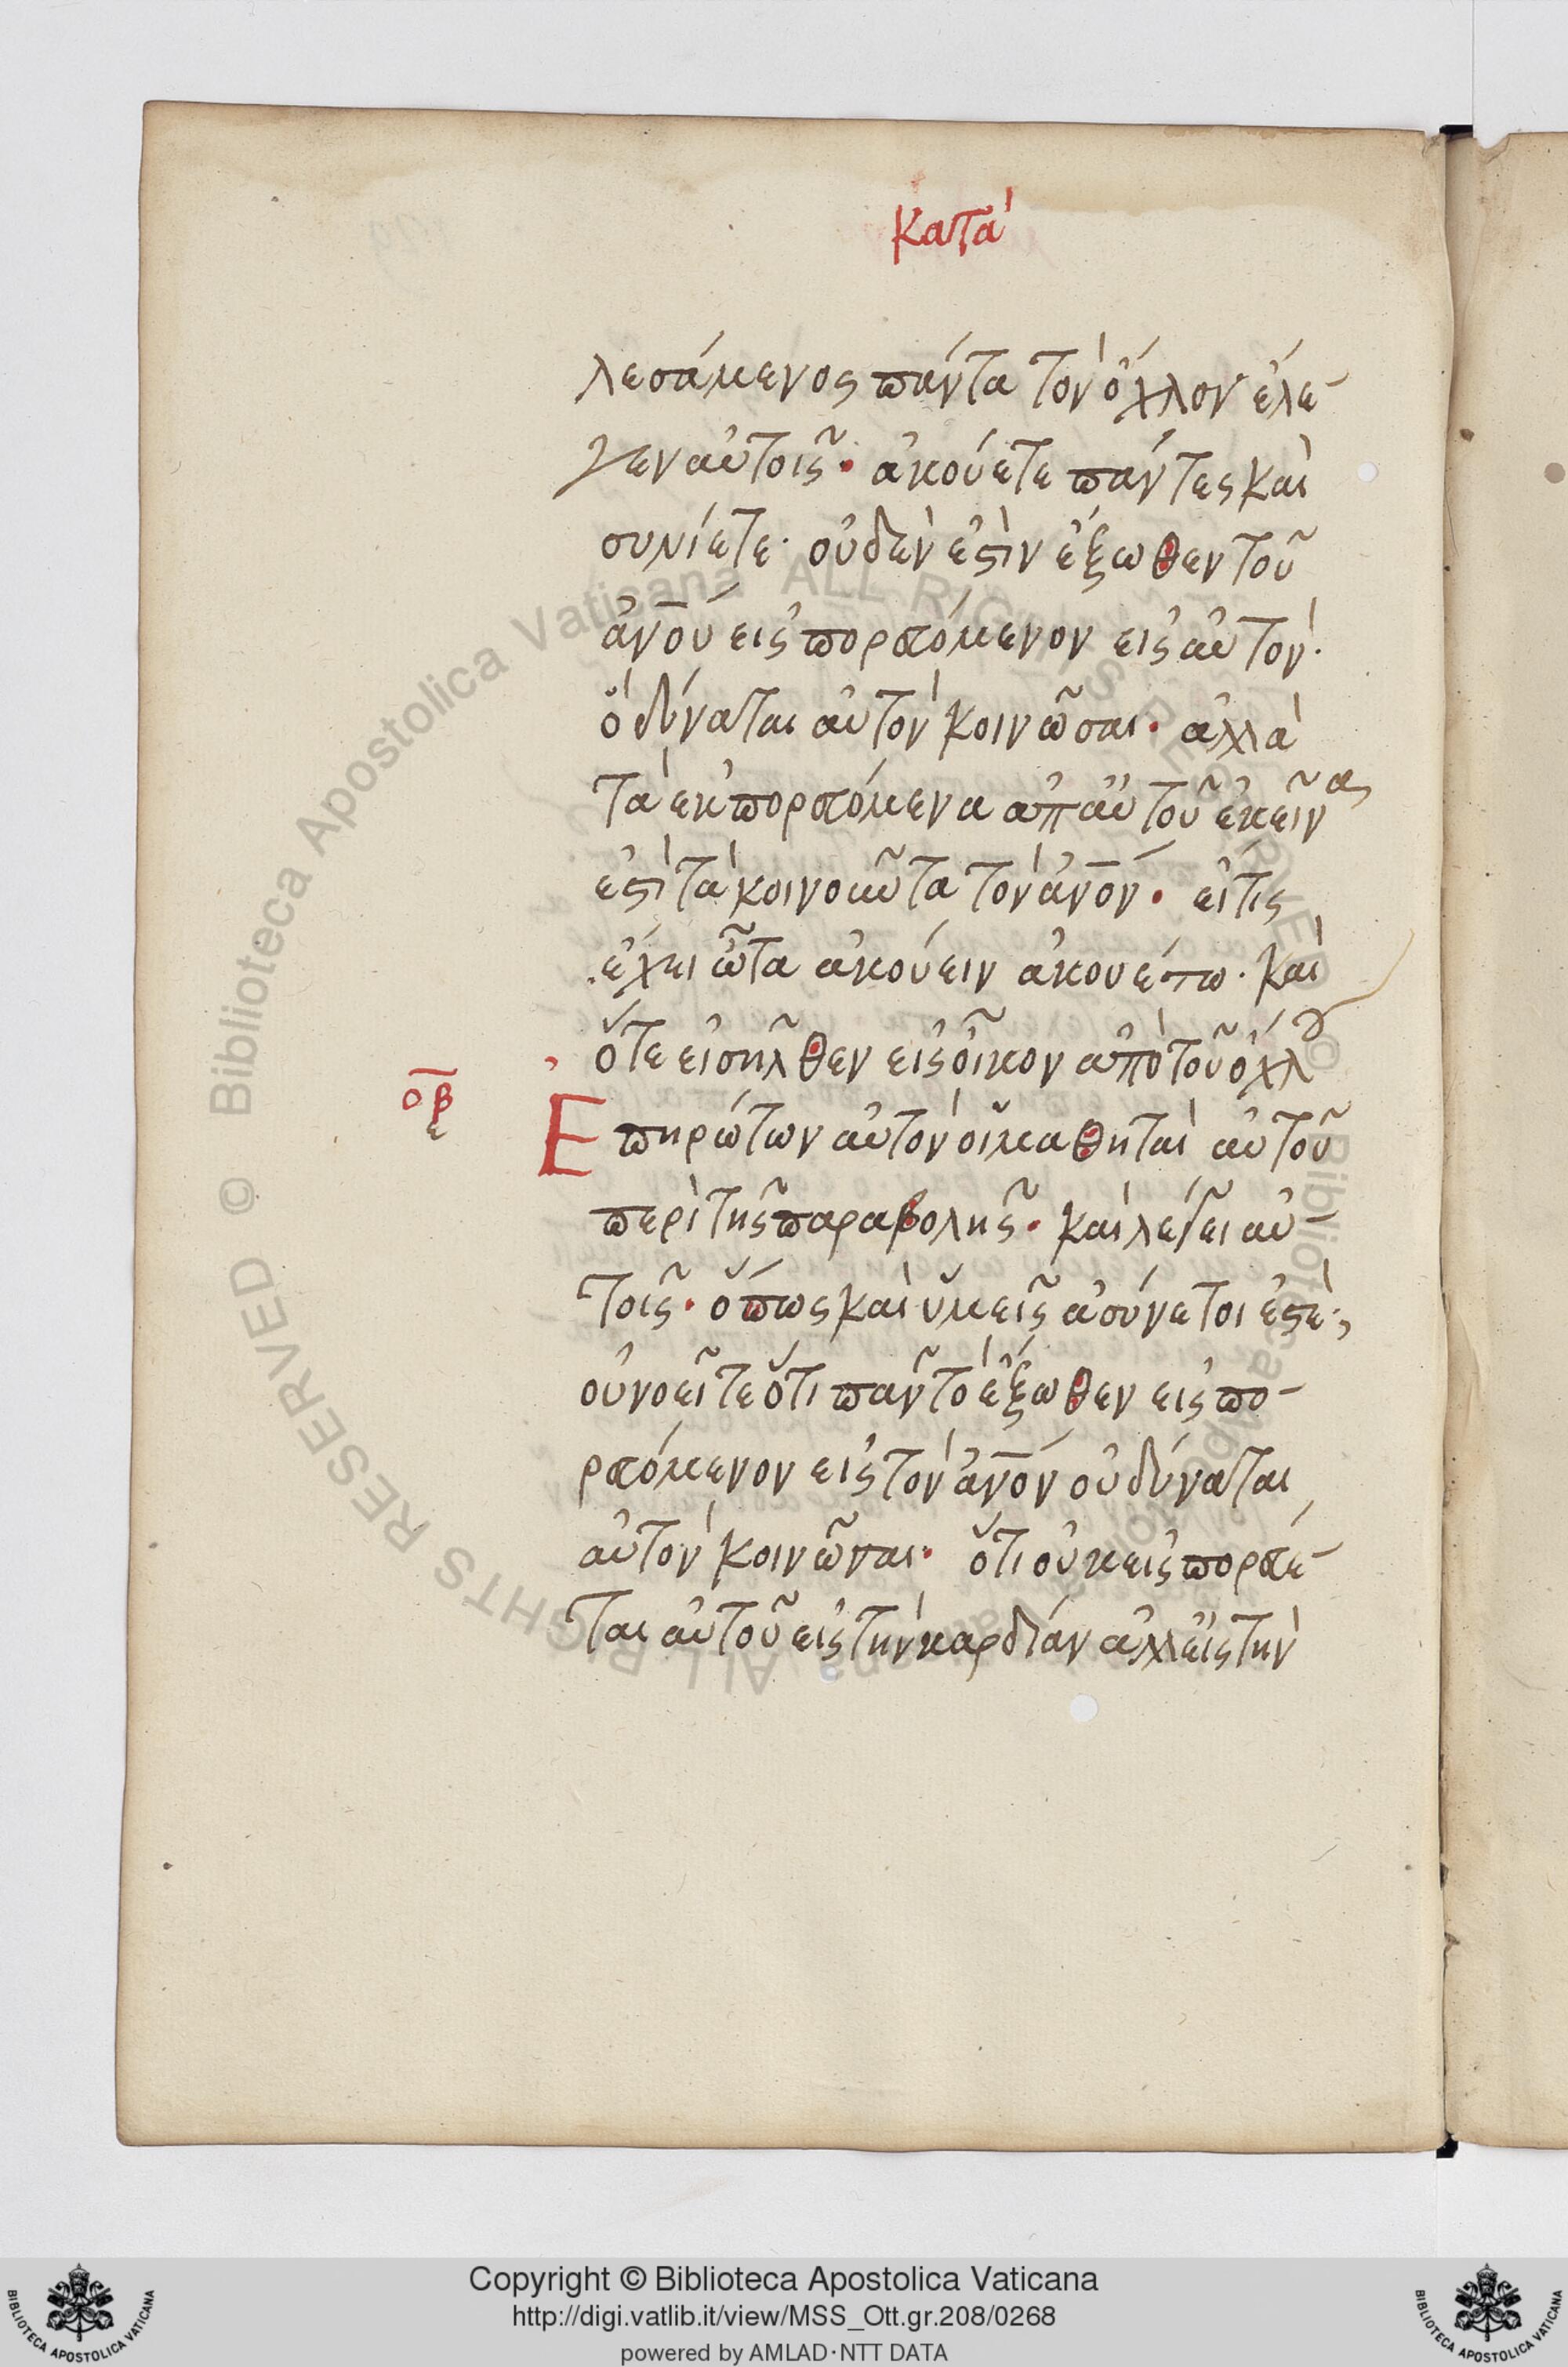 κατὰ
λεσάμενος πάντα τὸν ὄχλον ἔλε-
γεν αὐτοῖς· ἀκούετε πάντες καὶ
συνίετε· οὐδὲν ἐστὶν ἔξωθεν τοῦ
ἀνου εἰσπορευόμενον εἰς αὐτὸν·
ὃ δύναται αὐτὸν κοινῶσαι· ἀλλὰ
τὰ ἐκπορευόμενα ἀπ αὐτοῦ ἐκεῖνα
ἐστὶ τὰ κοινοῦντα τὸν ἀνον· εἴ τις
ἔχει ὦτα ἀκούειν ἀκουέτω· καὶ
ὅτε εἰσῆλθεν εἰς οἶκον ἀπὸ τοῦ ὄχλου
οβ
ε
Επηρώτων αὐτὸν οἱ μαθηταὶ αὐτοῦ
περὶ τῆς παραβολῆς· καὶ λέγει αὐ-
τοῖς· οὕτως καὶ ὑμεῖς ἀσύνετοι ἐστὲ;
οὐ νοεῖτε ὅτι πᾶν τὸ ἔξωθεν εἰσπο-
ρευόμενον εἰς τὸν ἀνον οὐ δύναται
αὐτὸν κοινῶσαι· ὅτι οὐκ εἰσπορεύε-
ται αὐτοῦ εἰς τὴν καρδίαν ἀλλ εἰς τὴν
© Biblioteca Apostolica Vaticana ALL RIGHTS RESERVED © Biblioteca Apostolica Vaticana ALL RIGHTS RESERVED
Copyright © Biblioteca Apostolica Vaticana
http://digi.vatlib.it/view/MSS_Ott.gr.208/0268
powered by AMLAD·NTT DATA
BIBLIOTECA APOSTOLICA VATICANA
BIBLIOTECA APOSTOLICA VATICANA